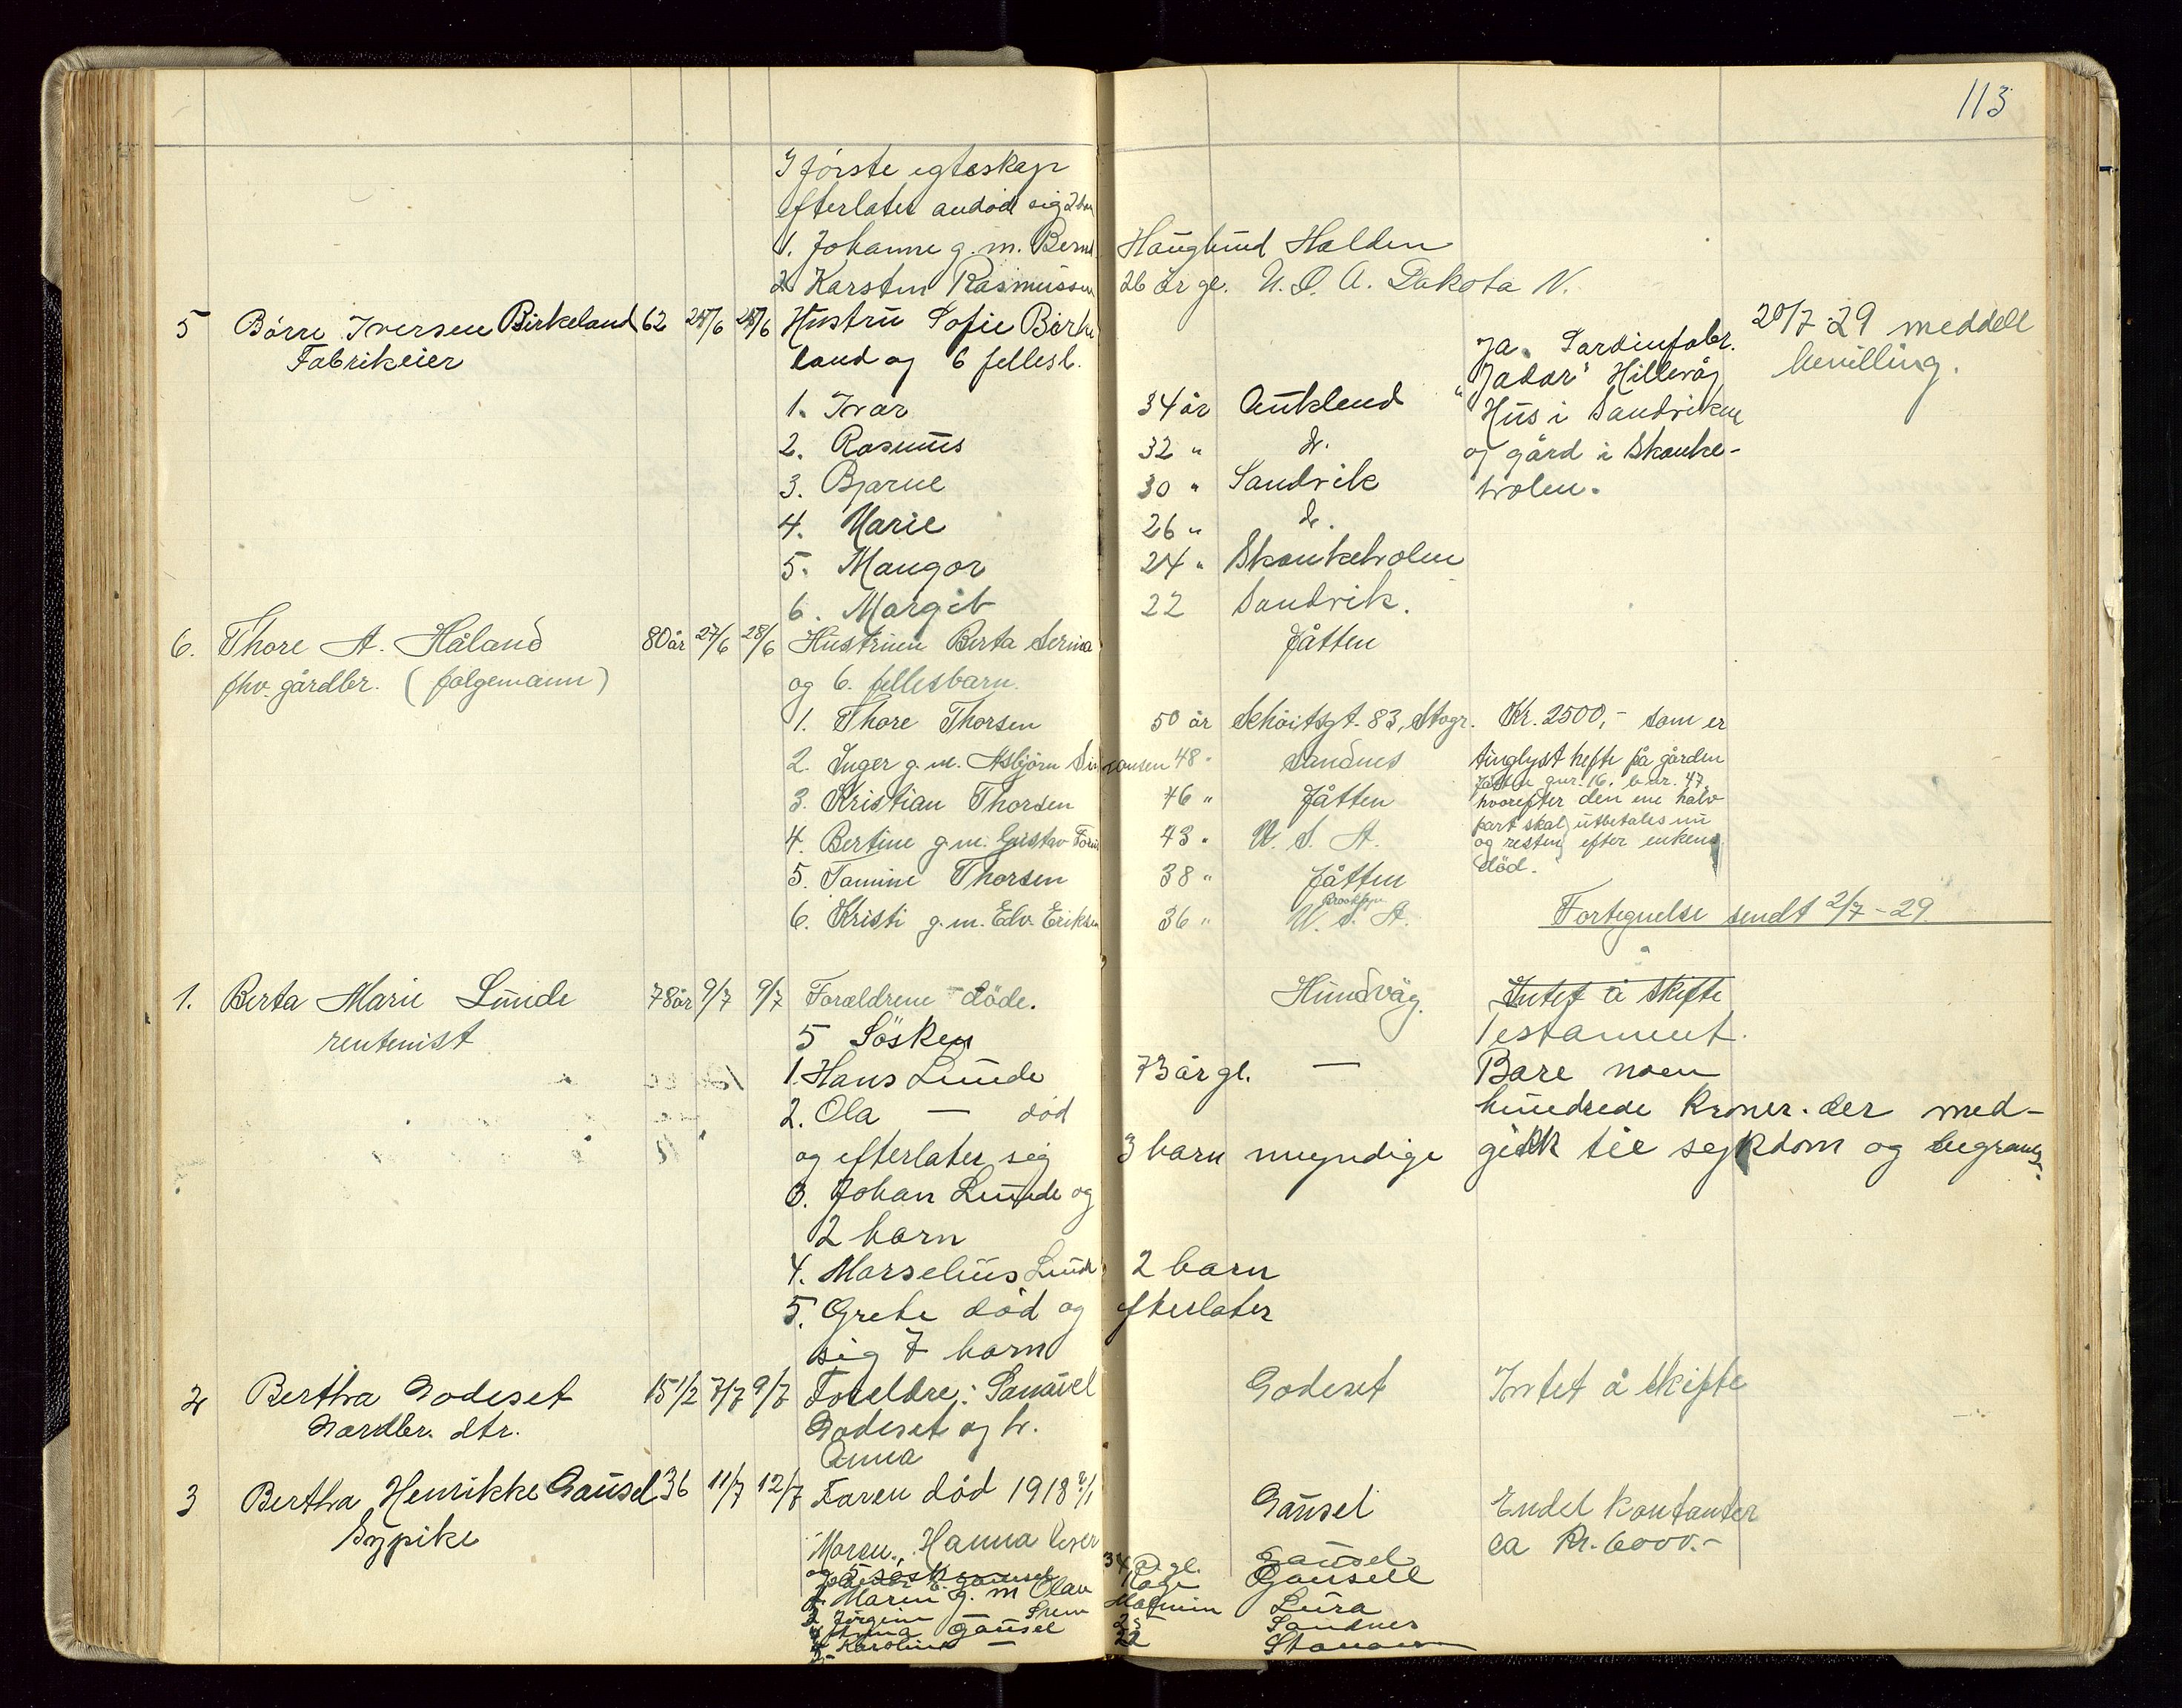 113
I første egteskap
efterlater avdøde sig 2 barn
1. Johanne g. m. Bernt Hauglund Halden
2. Karsten Rasmussen 26 år gl. U. S. A. Dakota N.
5 Børre Iversen Birkeland 62 24/6 28/6 Hustru Sofie Birke 20/7 29 meddelt
Fabrikeier land og 6 fellesb. Ja. Sardinfabr. bevilling.
"Jadar" Hillevåg
1. Ivar 34 år Auklend Hus i Sandviken
2. Rasmus 32 " do. og gård i Skanke-
3. Bjarne 30 " Sandvik holen.
4. Marie 26 " do.
5. Mangor 24 " Skankeholen
6. Margit 22 Sandvik.
6. Thore A. Håland 80 år 27/6 28/6 Hustruen Berta Serina Jåtten
fhv. gårdbr. (følgemann) og 6. fellesbarn.
1. Thore Thorsen 50 år Schøitsgt. 83, Stvgr. Kr. 2500,- som er
2. Inger g. m. Asbjørn Simonsen 48 " Sandnes tinglyst hefte på gården
Jåtten gnr. 16, b.nr. 47,
3. Kristian Thorsen 46 " Jåtten hvorefter den ene halv
part skal utbetales nu
4. Bertine g. m. Gustav 43 " U. S. A. og resten efter enkens
5. Tamine Thorsen 38 " Jåtten død.
Brooklyn
6. Kristi g. m. Edv. Eriksen 36 " U. S. A. Fortegnelse sendt 2/7-29
1. Berta Marie Lunde 78 år 9/7 9/7 Foreldrene døde. Hundvåg. Intet å skifte
rentenist 5 Søsken Testament.
1. Hans Lunde 73 år gl. — Bare noen
2. Ola — død hundrede kroner. der med-
og efterlater sig 3 barn myndige gikk til sykdom og begravels
3. Johan Lunde og
2 barn
4. Marselius Lunde 2 barn
5. Grete død og efterlater
sig 7 barn
2 Bertha Godeset 15 1/2 7/7 9/7 Foreldre: Samuel Godeset Intet å skifte
Gardbr. dtr. Godeset og h.
Anna
3 Bertha Henrikke Gausel 36 11/7 12/7 Faren død 1918 Gausel Endel kontanter
Sypike Moren, Hanna lever Gausel ca kr. 6000.-
og 5 søsken 34 år gl.
Gausel Gausel
Maren g. m Olav Lura
Jørgine Sandnes
Anna Gausel 25
Karoline — 22